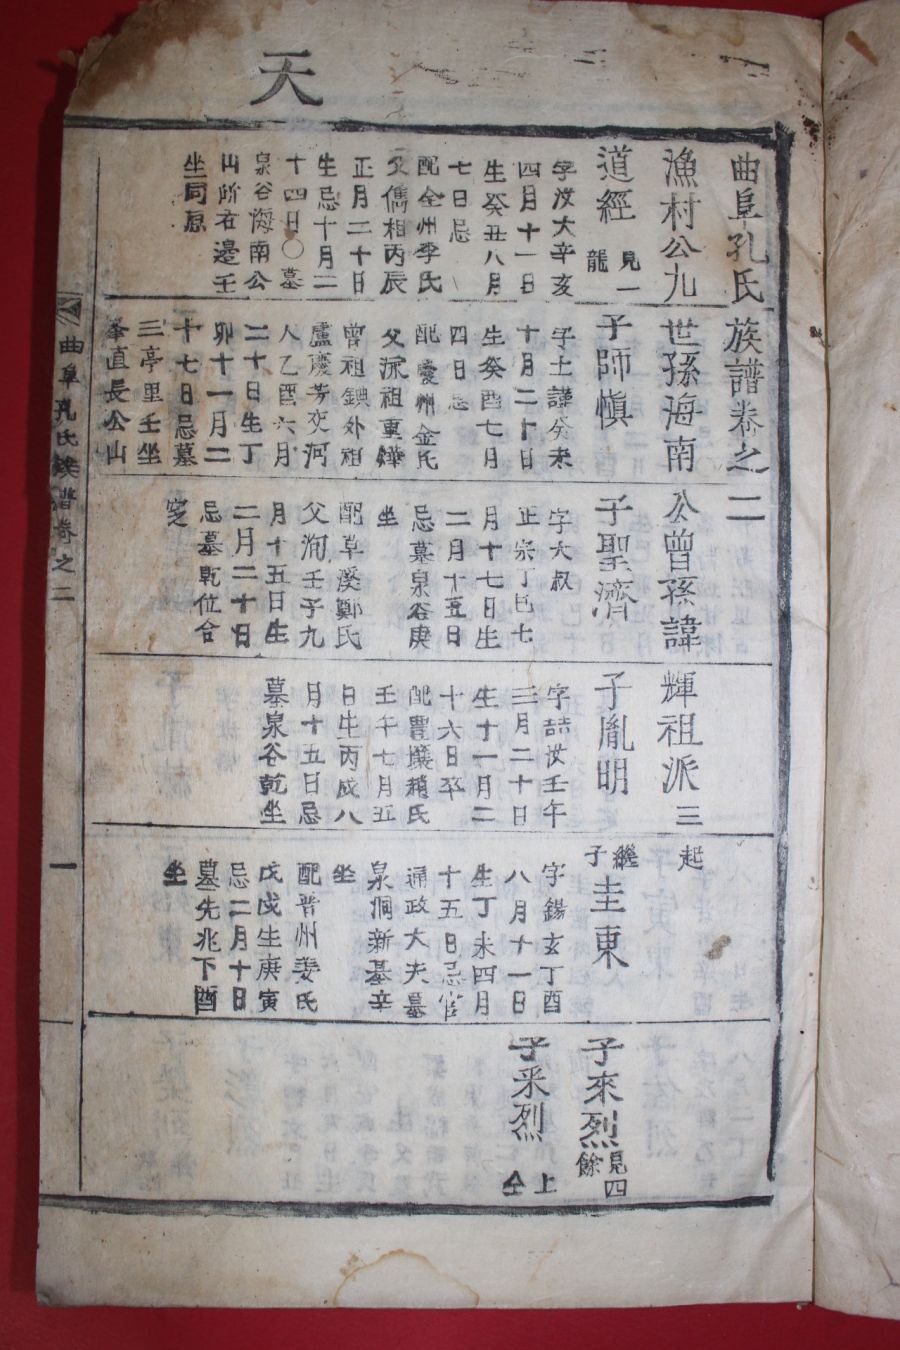 天
曲阜孔氏族譜卷之二
漁村公九世孫海南公曾孫諱輝祖派 三
起
道經 見一
龍
字汝大辛亥
四月十一日
生癸丑八月
七日忌
配全州李氏
父儁相丙辰
正月二十日
生忌十月二
十四日○墓
泉谷海南公
山所右邊壬
坐同原
子師愼
字士謹癸未
十月二十日
生癸酉七月
四日忌
配慶州金氏
父泝祖重鏵
曾祖䥫外祖
盧慶芳交河
人乙酉六月
二十日生丁
卯十一月二
十七日忌墓
三亭里壬坐
峯直長公山
子聖濟
字大叔
正宗丁巳七
月十七日生
二月十五日
忌墓泉谷庚
坐
配草溪鄭氏
父洵壬子九
月十五日生
二月二十日
忌墓乾位合
窆
子胤明
字喆汝壬午
三月二十日
生十一月二
十六日卒
配豊壤趙氏
壬午七月五
日生丙戌八
月十五日忌
墓泉谷乾坐
繼子圭東
字錫玄丁酉
八月十一日
生丁未四月
十五日忌官
通政大夫墓
泉洞新基辛
坐
配晋州姜氏
戊戌生庚寅
忌二月十日
墓先兆下酉
坐
子來烈 見四
餘
子采烈 上
仝
曲阜孔氏族譜卷之二
一